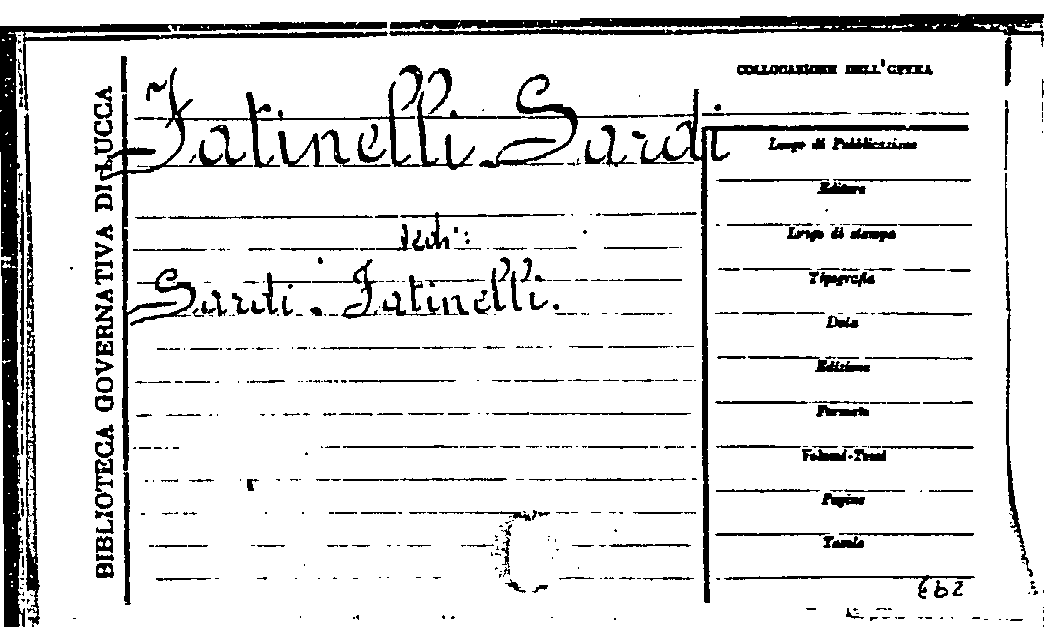 BIBLIOTECA GOVERNATIVA DI LUCCA
Fatinelli. Sardi
vedi:
Sardi. Fatinelli.
COLLOCAZIONE DELL'OPERA
Luogo di Pubblicazione
Editore
Luogo di stampa
Tipografia
Data
Edizione
Formato
Volumi-Tomi
Pagine
Tavole